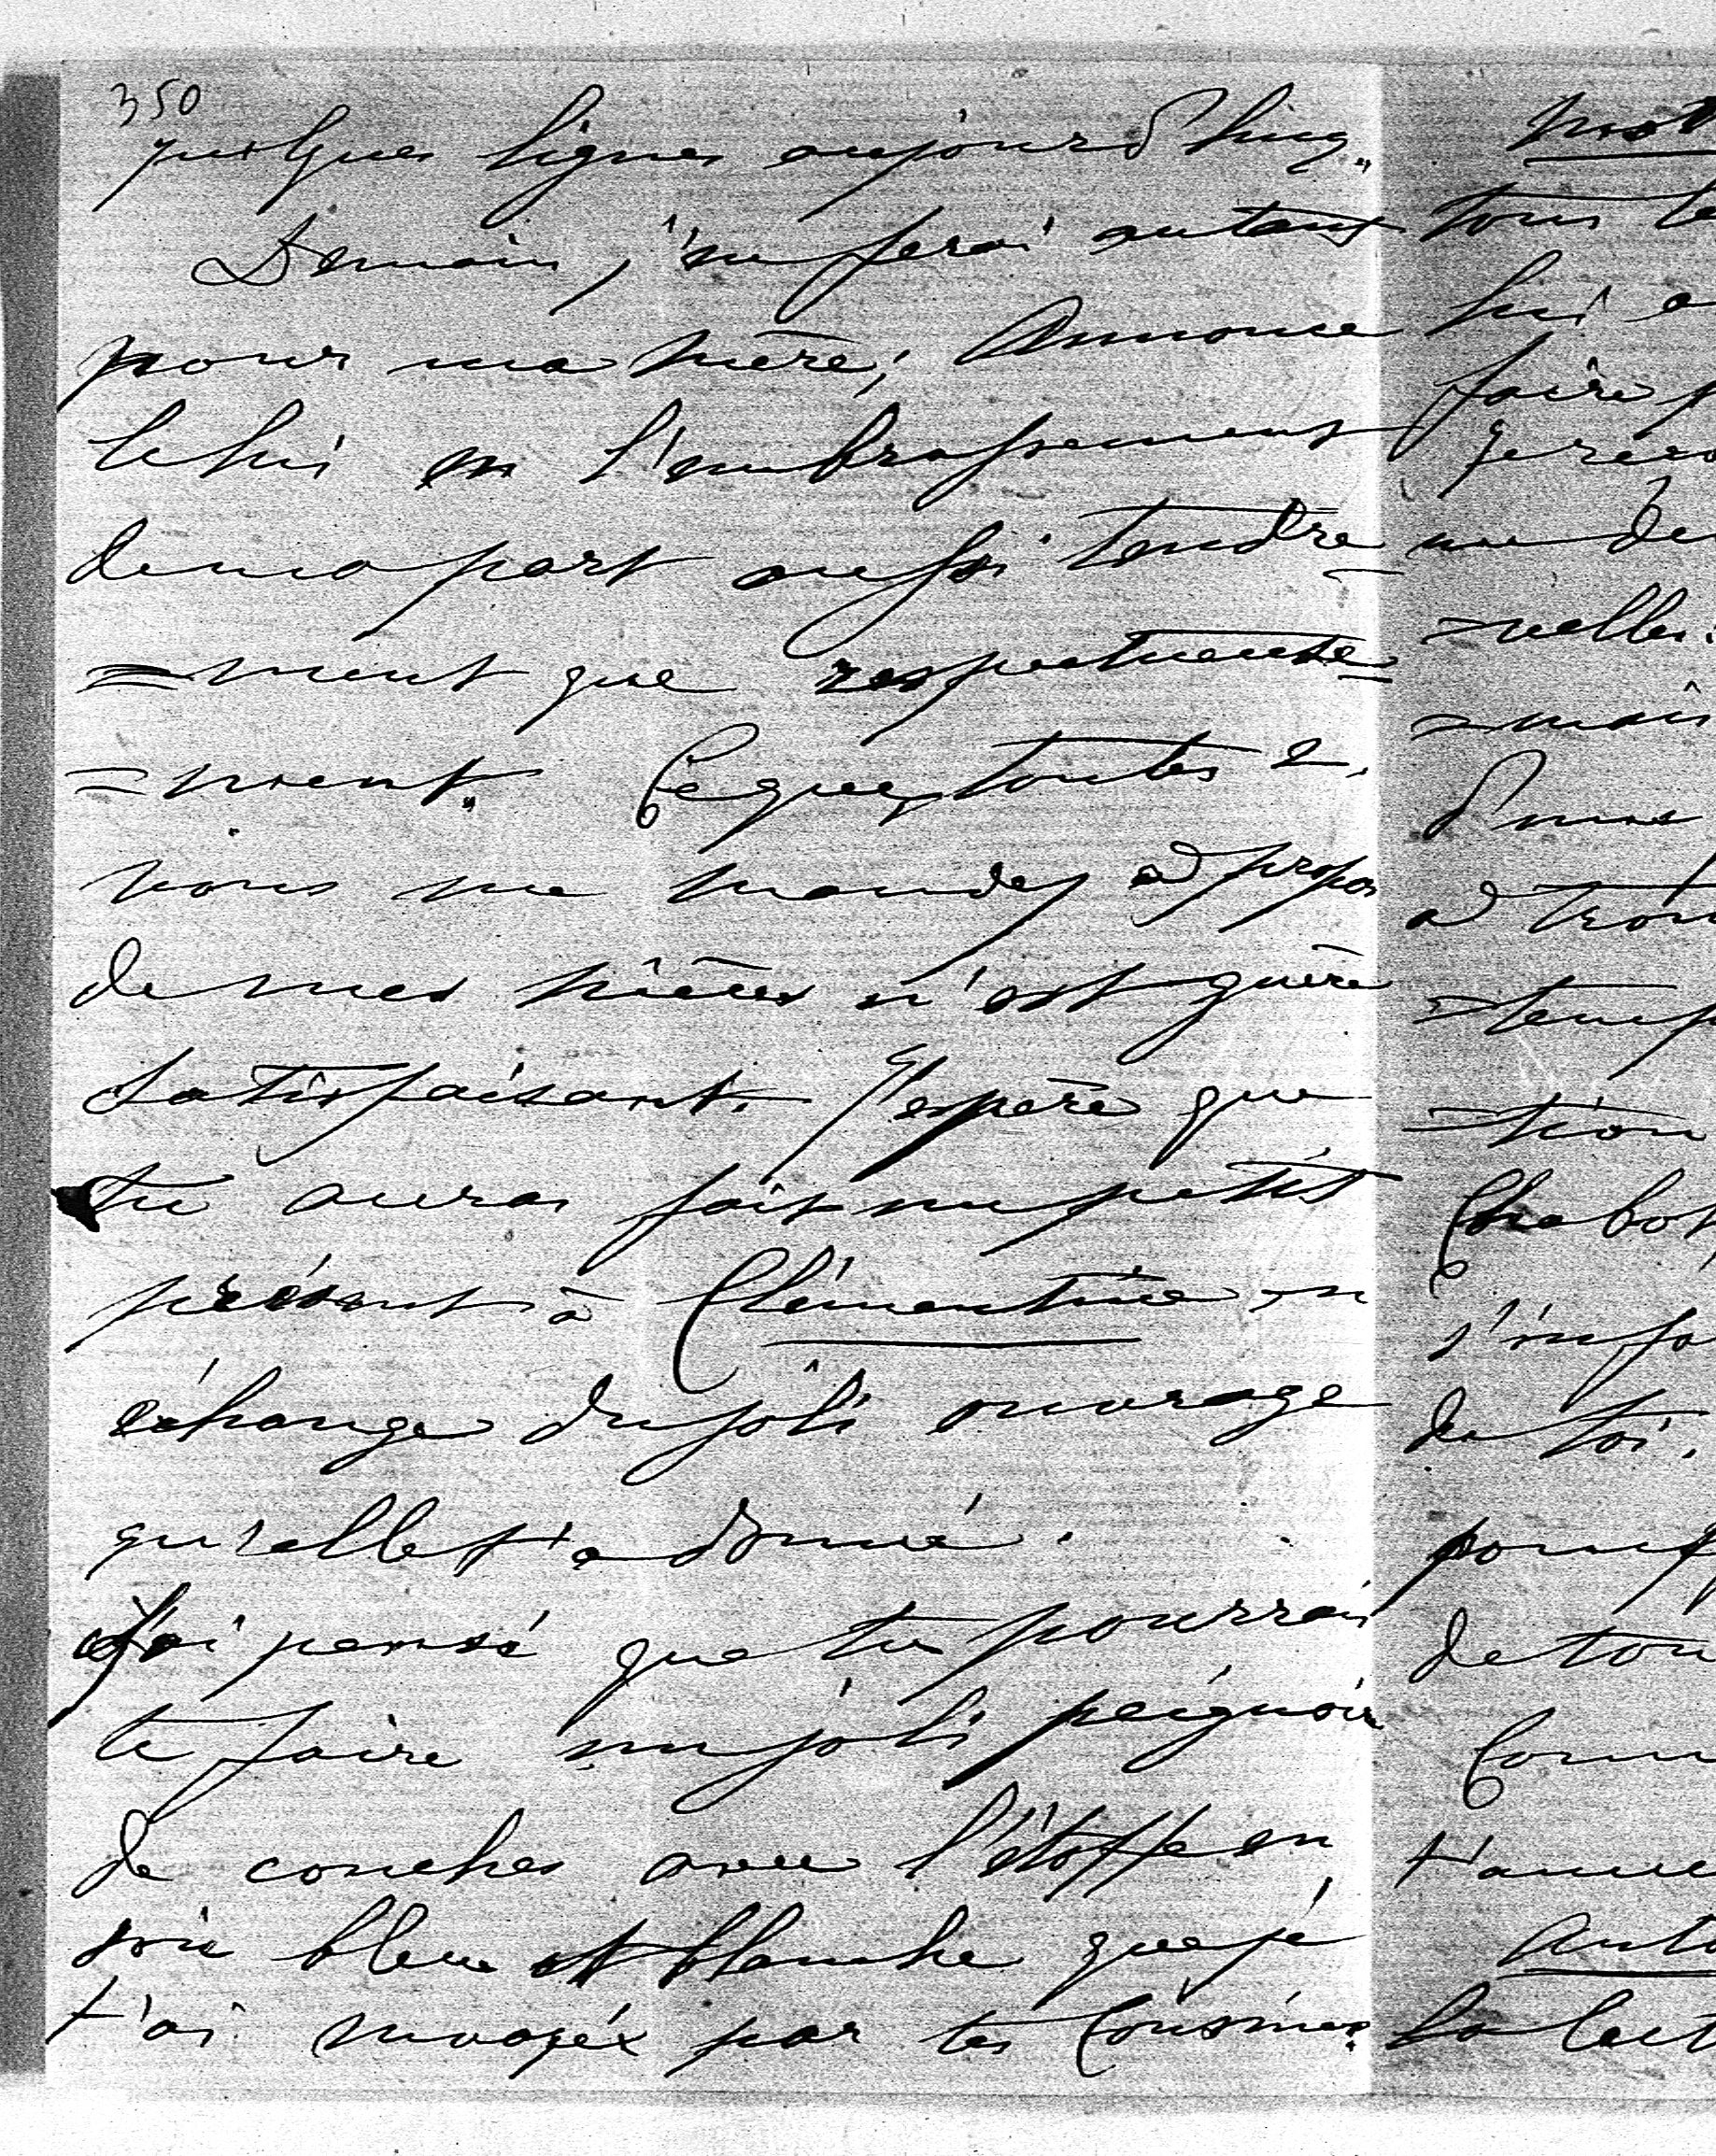 350
quelques lignes aujourd'hui.
Demain, j'en ferai autant
pour ma mère; Annonce
le lui en l'embrassement
de ma part aussi tendre
=ment que respectueuse=
=ment. Ce que, toutes 2,
vous me mandez à propos
de mes nièces n'est guère
satisfaisant. J'espère que
tu auras fait un petit
présent à Clémentine en
échange du joli ouvrage
qu'elle t'a donné.
J'ai pensé que tu pourrais
te faire un joli peignoir
de couches avec l'étoffe en
soie bleue et blanche que je
t'ai envoyée par tes Cousines.
tous
lui
faire
de
=velles
=mais
d'une
à
=tion
Chabot
de toi.
de
la